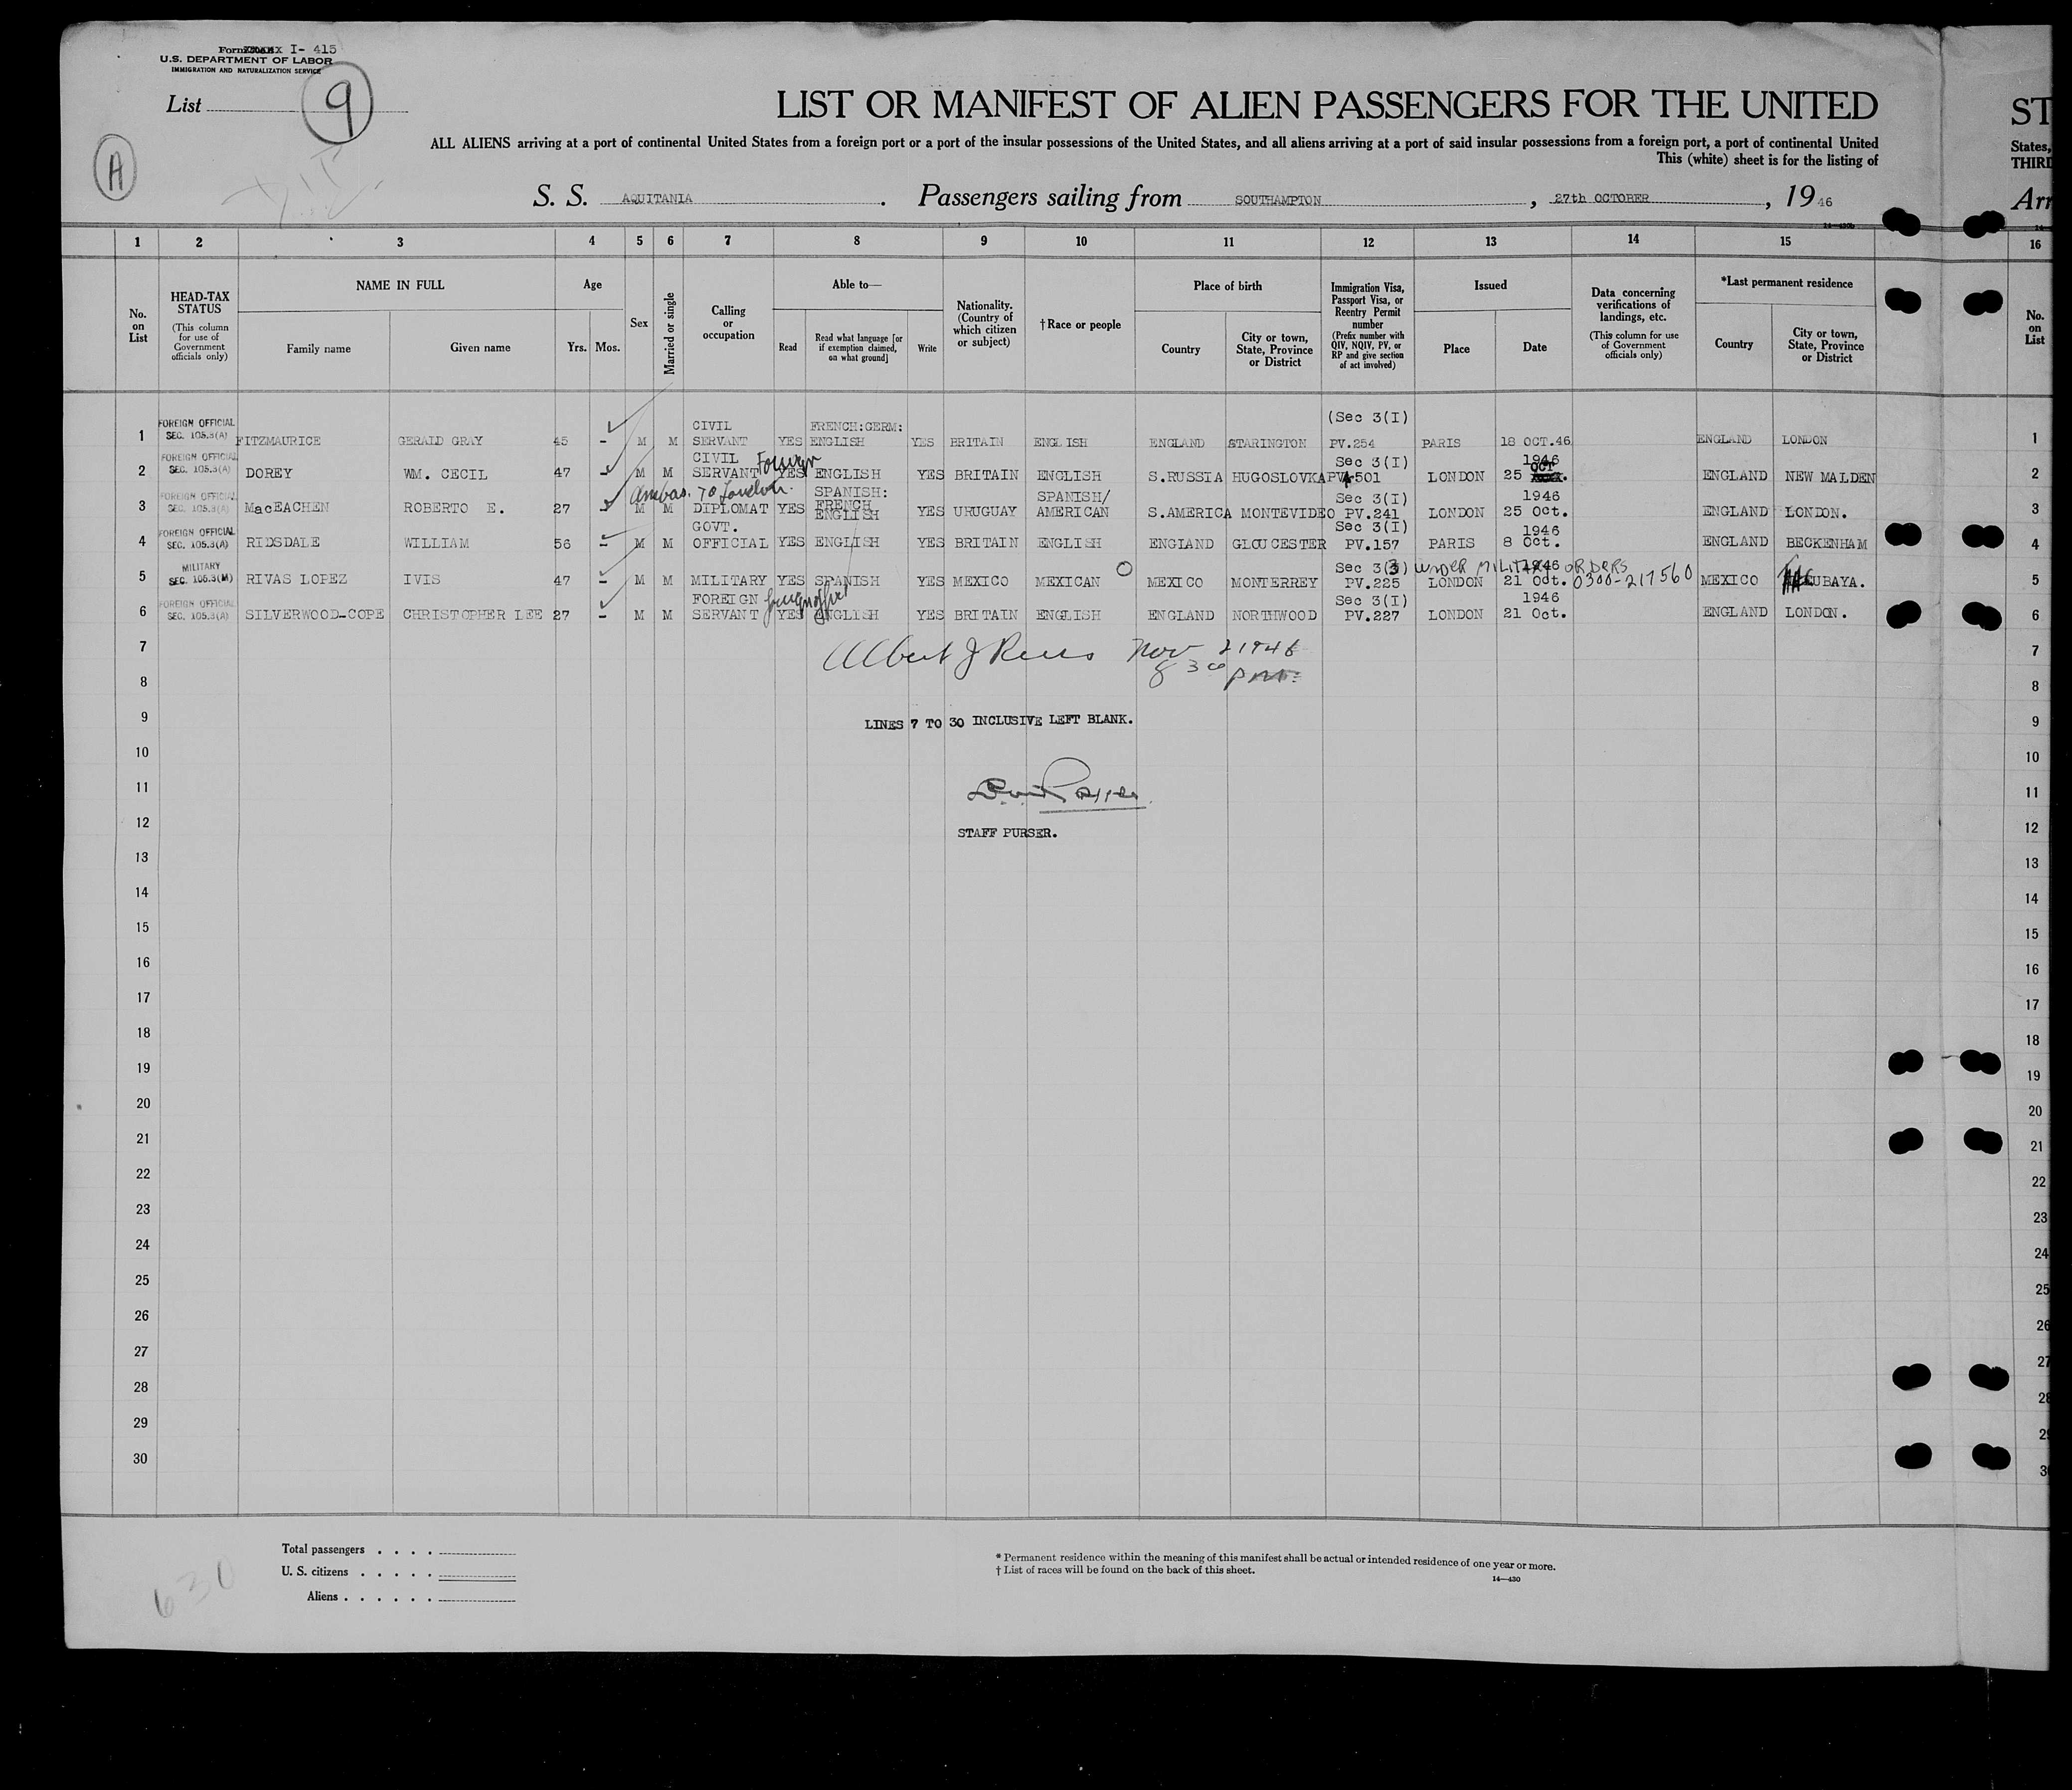 Form I- 415
U.S. DEPARTMENT OF LABOR
IMMIGRATION AND NATURALIZATION SERVICE
List 9
A
LIST OR MANIFEST OF ALIEN PASSENGERS FOR THE UNITED ST
ALL ALIENS arriving at a port of continental United States from a foreign port or a port of the insular possessions of the United States, and all aliens arriving at a port of said insular possessions from a foreign port, a port of continental United States,
This (white) sheet is for the listing of THIRD
S. S. AQUITANIA . Passengers sailing from SOUTHAMPTON , 27th OCTOBER , 19 46 Arr
1 2 3 4 5 6 7 8 9 10 11 12 13 14 15 16
No. on List
HEAD-TAX STATUS (This column for use of Government officials only)
NAME IN FULL
Family name Given name
Age
Yrs. Mos.
Sex
Married or single
Calling or occupation
Able to—
Read Read what language [or if exemption claimed, on what ground] Write
Nationality. (Country of which citizen or subject)
†Race or people
Place of birth
Country City or town, State, Province or District
Immigration Visa, Passport Visa, or Reentry Permit number (Prefix number with QIV, NQIV, PV, or RP and give section of act involved)
Issued
Place Date
Data concerning verifications of landings, etc. (This column for use of Government officials only)
*Last permanent residence
Country City or town, State, Province or District
No. on List
FOREIGN OFFICIAL CIVIL FRENCH:GERM: (Sec 3(I)
1 SEC. 105.3(A) FITZMAURICE GERALD GRAY 45 - M M SERVANT YES ENGLISH YES BRITAIN ENGLISH ENGLAND STARINGTON PV.254 PARIS 18 OCT.46 ENGLAND LONDON 1
FOREIGN OFFICIAL CIVIL Foreign Sec 3(I) 1946
2 SEC. 105.3(A) DOREY WM. CECIL 47 - M M SERVANT YES ENGLISH YES BRITAIN ENGLISH S.RUSSIA HUGOSLOVKA PV 501 LONDON 25 OCT ENGLAND NEW MALDEN 2
FOREIGN OFFICIAL Ambas. to London. SPANISH: FRENCH SPANISH/ Sec 3(I) 1946
3 SEC. 105.3(A) MacEACHEN ROBERTO E. 27 - M M DIPLOMAT YES ENGLISH YES URUGUAY AMERICAN S.AMERICA MONTEVIDEO PV.241 LONDON 25 Oct. ENGLAND LONDON. 3
FOREIGN OFFICIAL GOVT. Sec 3(I) 1946
4 SEC. 105.3(A) RIDSDALE WILLIAM 56 - M M OFFICIAL YES ENGLISH YES BRITAIN ENGLISH ENGLAND GLOUCESTER PV.157 PARIS 8 Oct. ENGLAND BECKENHAM 4
MILITARY Sec 3(3) UNDER MILITARY ORDERS 1946
5 SEC. 105.3(M) RIVAS LOPEZ IVIS 47 - M M MILITARY YES SPANISH YES MEXICO MEXICAN MEXICO MONTERREY PV.225 LONDON 21 Oct. 0300-217560 MEXICO TACUBAYA. 5
FOREIGN OFFICIAL FOREIGN Sec 3(I) 1946
6 SEC. 105.3(A) SILVERWOOD-COPE CHRISTOPHER LEE 27 - M M SERVANT YES ENGLISH YES BRITAIN ENGLISH ENGLAND NORTHWOOD PV.227 LONDON 21 Oct. ENGLAND LONDON. 6
7 Albert J Nov 2 1946 7
8 8 30 pm 8
9 LINES 7 TO 30 INCLUSIVE LEFT BLANK. 9
10 10
11 11
12 STAFF PURSER. 12
13 13
14 14
15 15
16 16
17 17
18 18
19 19
20 20
21 21
22 22
23 23
24 24
25 25
26 26
27 27
28 28
29 29
30 30
630
Total passengers . . . .
U. S. citizens . . . . .
Aliens . . . . . .
* Permanent residence within the meaning of this manifest shall be actual or intended residence of one year or more.
† List of races will be found on the back of this sheet.
14—430